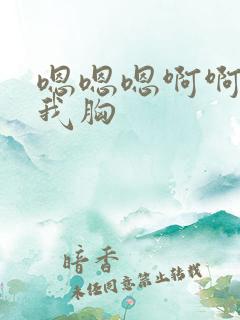 嗯嗯嗯啊啊
我胸
暗香
未经同意禁止转载